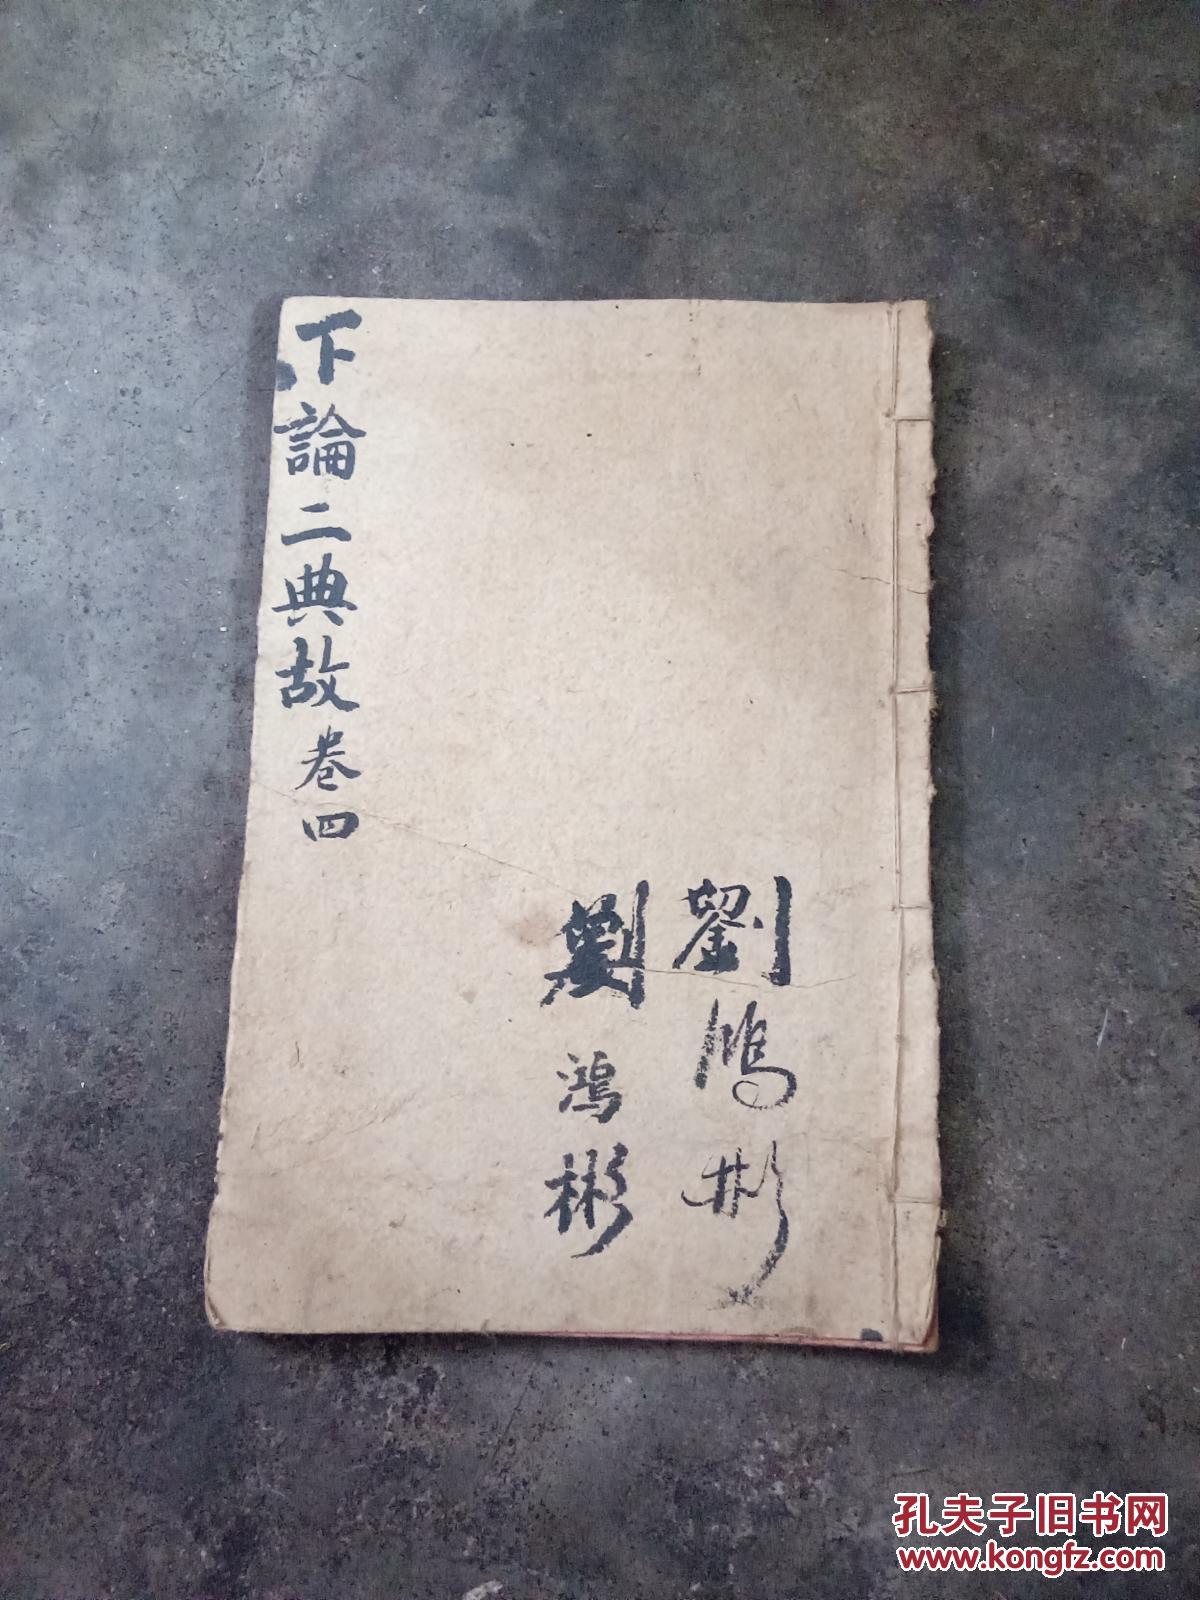 劉鴻彬
劉鴻彬
下論二典故卷四
孔夫子旧书网
www.kongfz.com